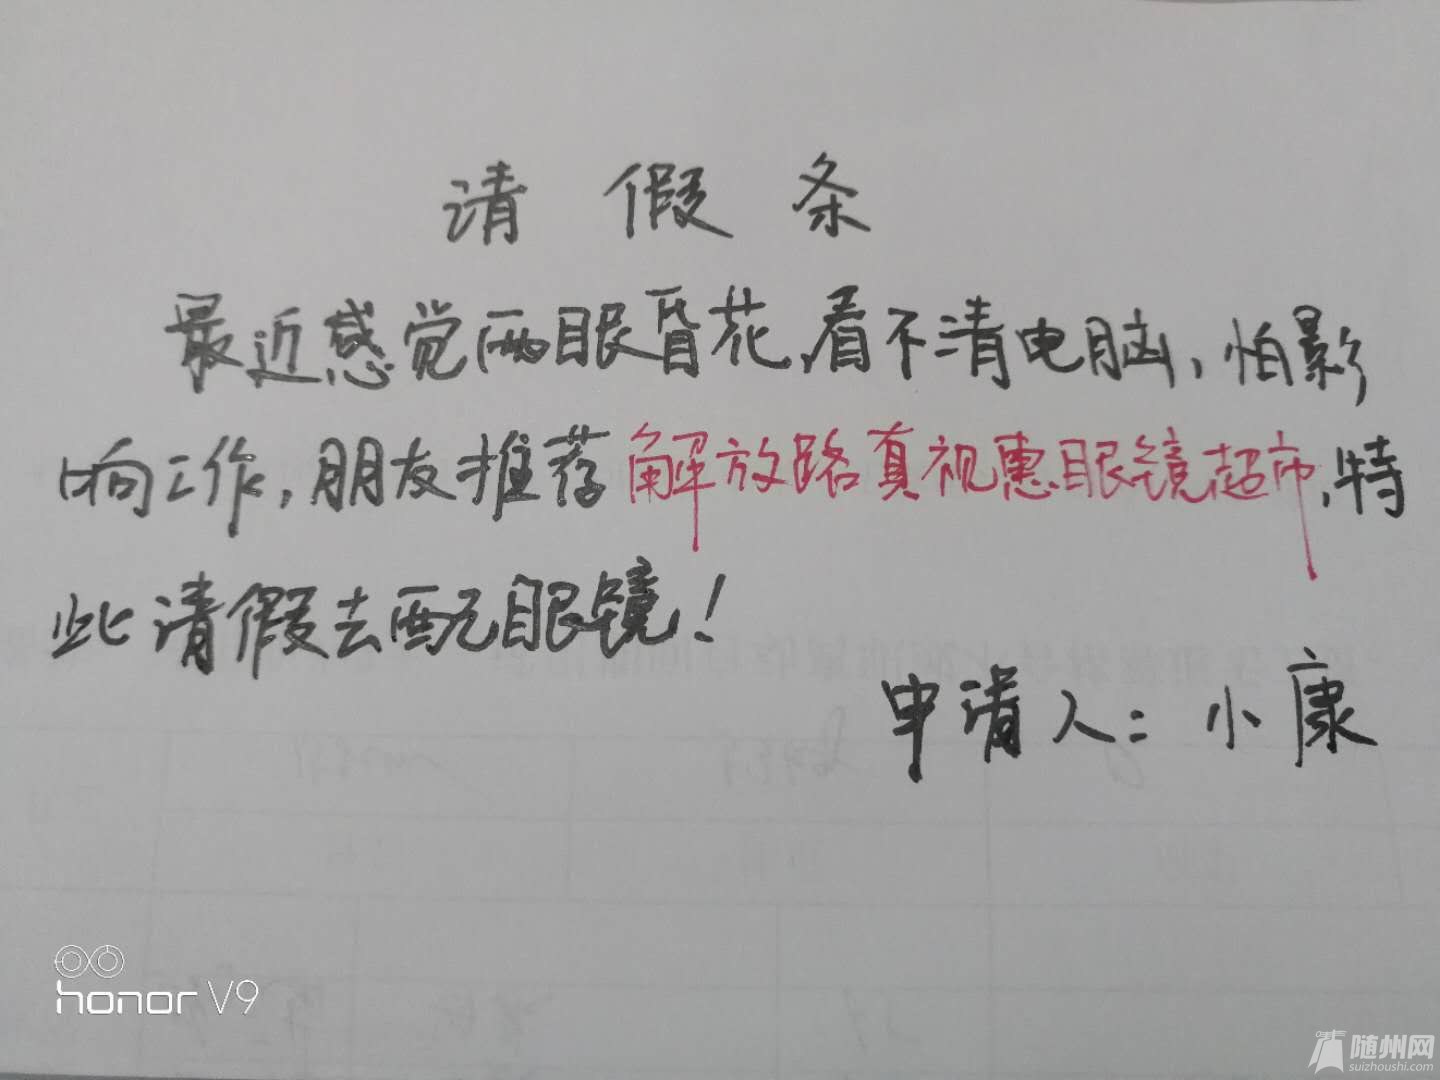 请假条
最近感觉两眼昏花,看不清电脑,怕影
响工作,朋友推荐解放路真视惠眼镜超市,特
此请假去配眼镜!
申请人:小康
honor V9
随州网
suizhoushi.com